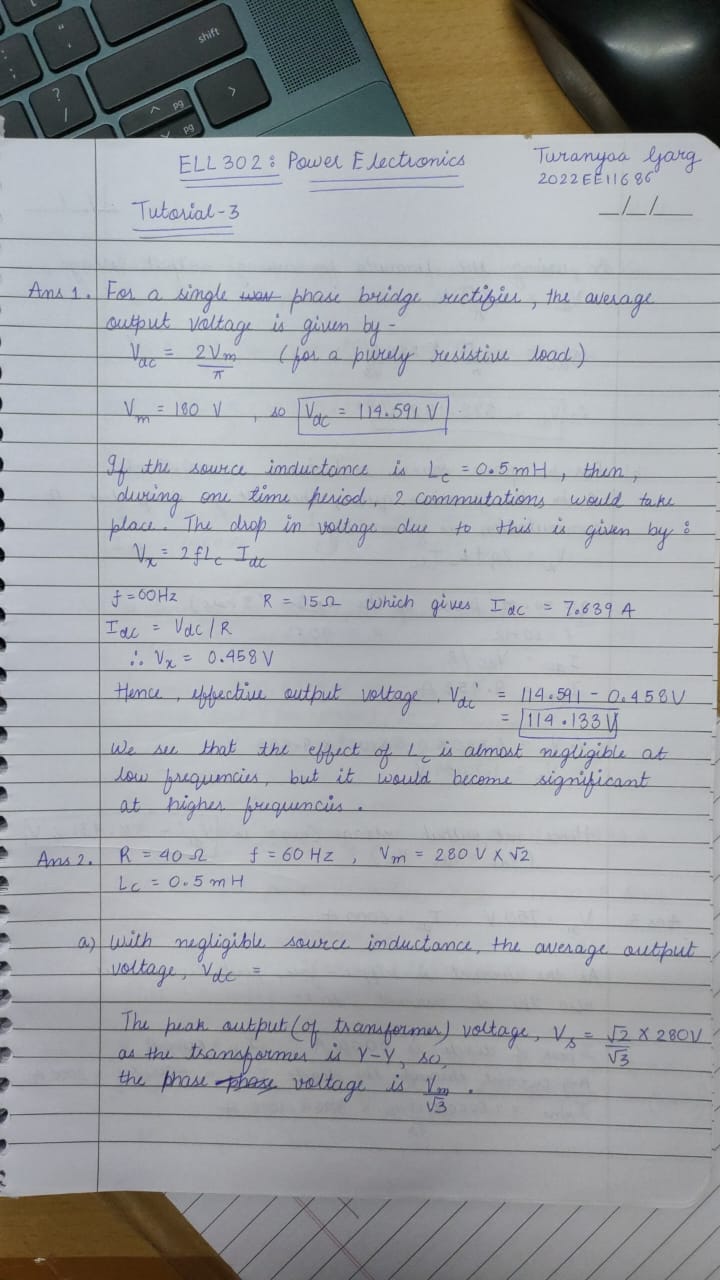 shift
?
/
pg
pg
ELL 302 : Power Electronics
Turanyaa Garg
2022EE11686
Tutorial-3
_/_/_
Ans 1. For a single phase bridge rectifier, the average
output voltage is given by -
Vdc = 2Vm/π (for a purely resistive load)
Vm = 180 V , so Vdc = 114.591 V
If the source inductance is Lc = 0.5 mH, then,
during one time period, 2 commutations would take
place. The drop in voltage due to this is given by :
Vx = 2fLc Idc
f = 60Hz R = 15Ω which gives Idc = 7.639 A
Idc = Vdc/R
∴ Vx = 0.458 V
Hence, effective output voltage, Vdc' = 114.591 - 0.458V
= 114.133 V
We see that the effect of Lc is almost negligible at
low frequencies, but it would become significant
at higher frequencies.
Ans 2. R = 40 Ω f = 60 Hz , Vm = 280 V X √2
Lc = 0.5 mH
a) With negligible source inductance, the average output
voltage, Vdc =
The peak output (of transformer) voltage, Vs = √2/√3 X 280V
as the transformer is Y-Y, so,
the phase voltage is Vm/√3 .